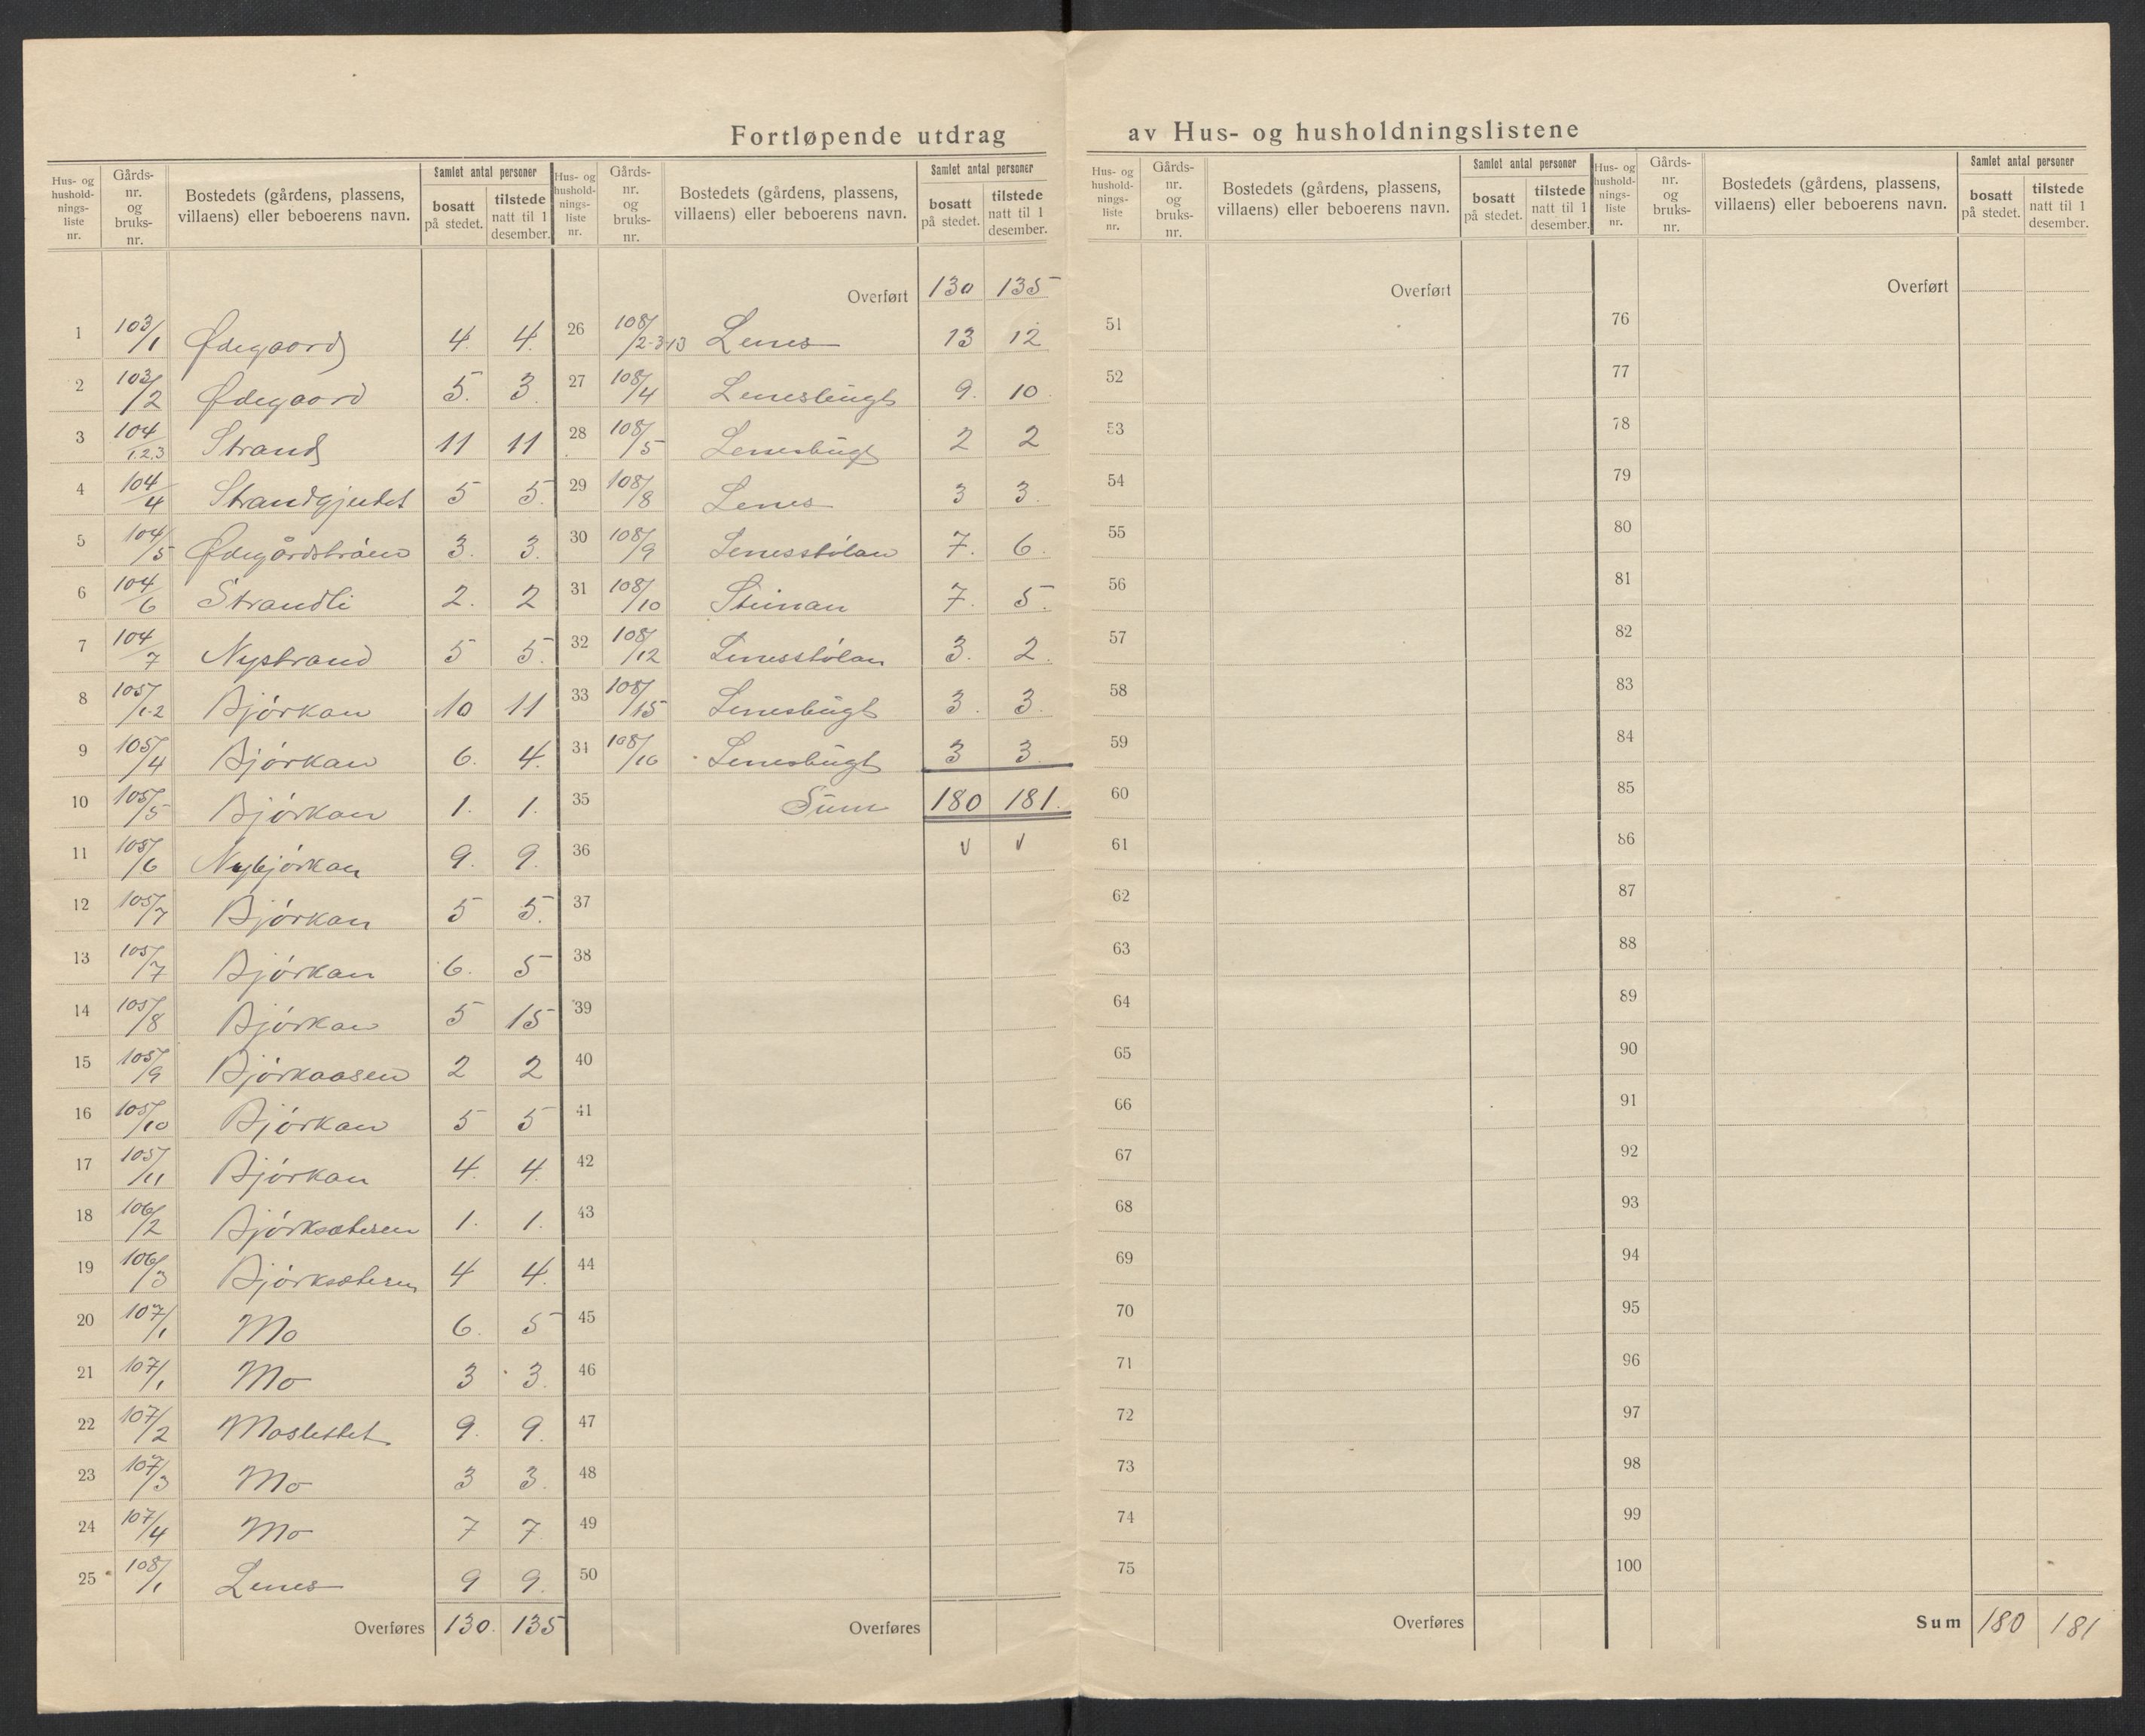 Fortløpende utdrag av Hus- og husholdningslistene
Hus- og husholdningsliste nr. | Gårdsnr. og bruksnr. | Bostedets (gårdens, plassens, villaens) eller beboerens navn. | Samlet antal personer bosatt på stedet. | tilstede natt til 1 desember.
1 103/1 Ødegaard 4. 4.
2 103/2 Ødegaard 5. 3.
3 104/1.2.3 Strand 11 11
4 104/4 Strandgjerdet 5 5.
5 104/5 Ødegårdstrøen 3. 3.
6 104/6 Strandli 2. 2
7 104/7 Nystrand 5 5.
8 105/1-2 Bjórkan 10 11
9 105/4 Bjórkan 6. 4.
10 105/5 Bjórkan 1. 1.
11 105/6 Nybjórkan 9. 9.
12 105/7 Bjórkan 5 5.
13 105/7 Bjórkan 6. 5
14 105/8 Bjórkan 5 15
15 105/9 Bjórkaasen 2 2
16 105/10 Bjórkan 5 5
17 105/11 Bjórkan 4. 4.
18 106/2 Bjórksæteren 1. 1.
19 106/3 Bjórksæteren 4 4.
20 107/1 Mo 6. 5
21 107/1 Mo 3 3.
22 107/2 Moslettet 9. 9.
23 107/3 Mo 3 3.
24 107/4 Mo 7 7
25 108/1 Lenes 9 9.
Overføres 130. 135
Hus- og husholdningsliste nr. | Gårdsnr. og bruksnr. | Bostedets (gårdens, plassens, villaens) eller beboerens navn. | Samlet antal personer bosatt på stedet. | tilstede natt til 1 desember.
Overført 130 135
26 108/2-3-13 Lenes 13 12
27 108/4 Lenesbügt 9. 10.
28 108/5 Lenesbügt 2 2
29 108/8 Lenes 3 3.
30 108/9 Lenesstólan 7. 6.
31 108/10 Steinan 7. 5.
32 108/12 Lenesstólan 3. 2.
33 108/15 Lenesbügt 3. 3.
34 108/16 Lenesbügt 3 3.
35 Süm 180 181.
36 v v
37
38
39
40
41
42
43
44
45
46
47
48
49
50
Overføres
Hus- og husholdningsliste nr. | Gårdsnr. og bruksnr. | Bostedets (gårdens, plassens, villaens) eller beboerens navn. | Samlet antal personer bosatt på stedet. | tilstede natt til 1 desember.
Overført
51
52
53
54
55
56
57
58
59
60
61
62
63
64
65
66
67
68
69
70
71
72
73
74
75
Overføres
Hus- og husholdningsliste nr. | Gårdsnr. og bruksnr. | Bostedets (gårdens, plassens, villaens) eller beboerens navn. | Samlet antal personer bosatt på stedet. | tilstede natt til 1 desember.
Overført
76
77
78
79
80
81
82
83
84
85
86
87
88
89
90
91
92
93
94
95
96
97
98
99
100
Sum 180 181